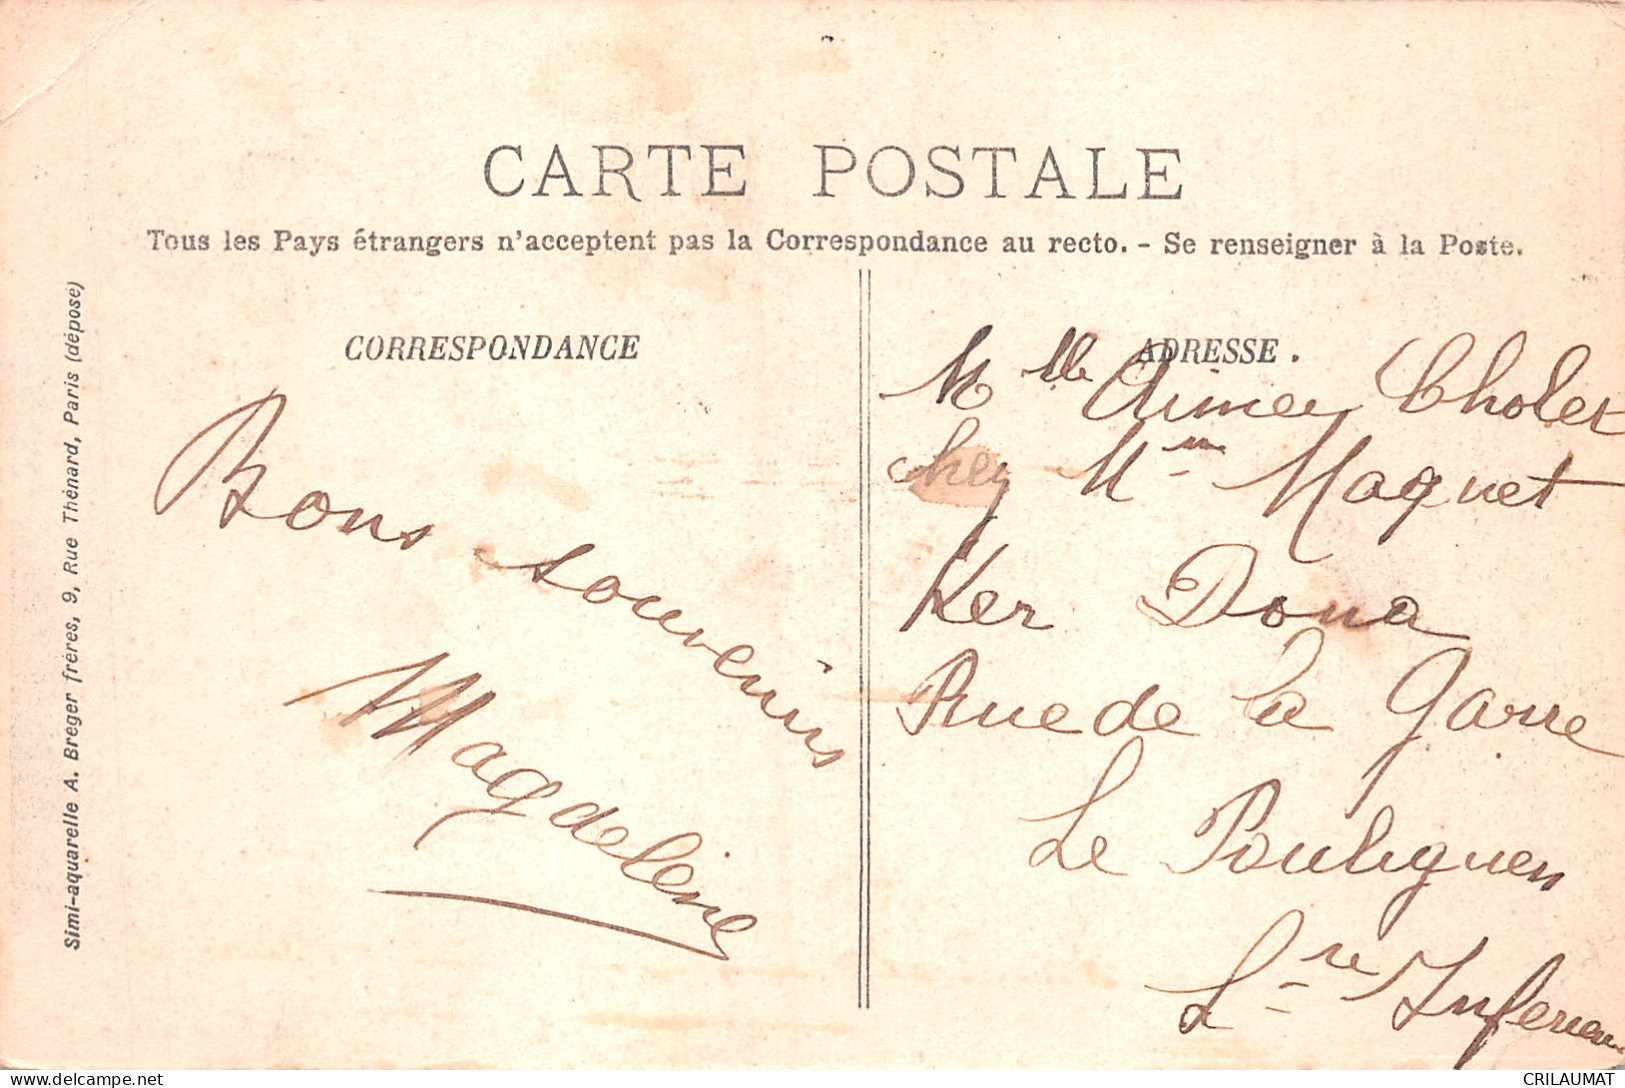 CARTE POSTALE
Tous les Pays étrangers n'acceptent pas la Correspondance au recto. - Se renseigner à la Poste.
Simi-aquarelle A. Breger frères, 9, Rue Thénard, Paris (déposé)
CORRESPONDANCE
Bons souvenirs
Magdeleine
ADRESSE.
Mlle Aimey Cholet
chez Mme Maquet
Ker Dona
Rue de la Gare
Le Pouliguen
Lre Inferieure
CRILAUMAT